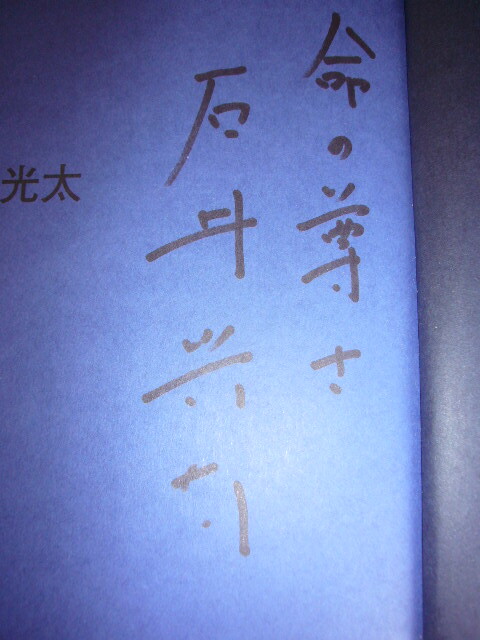 命の尊さ
石井光太
光太